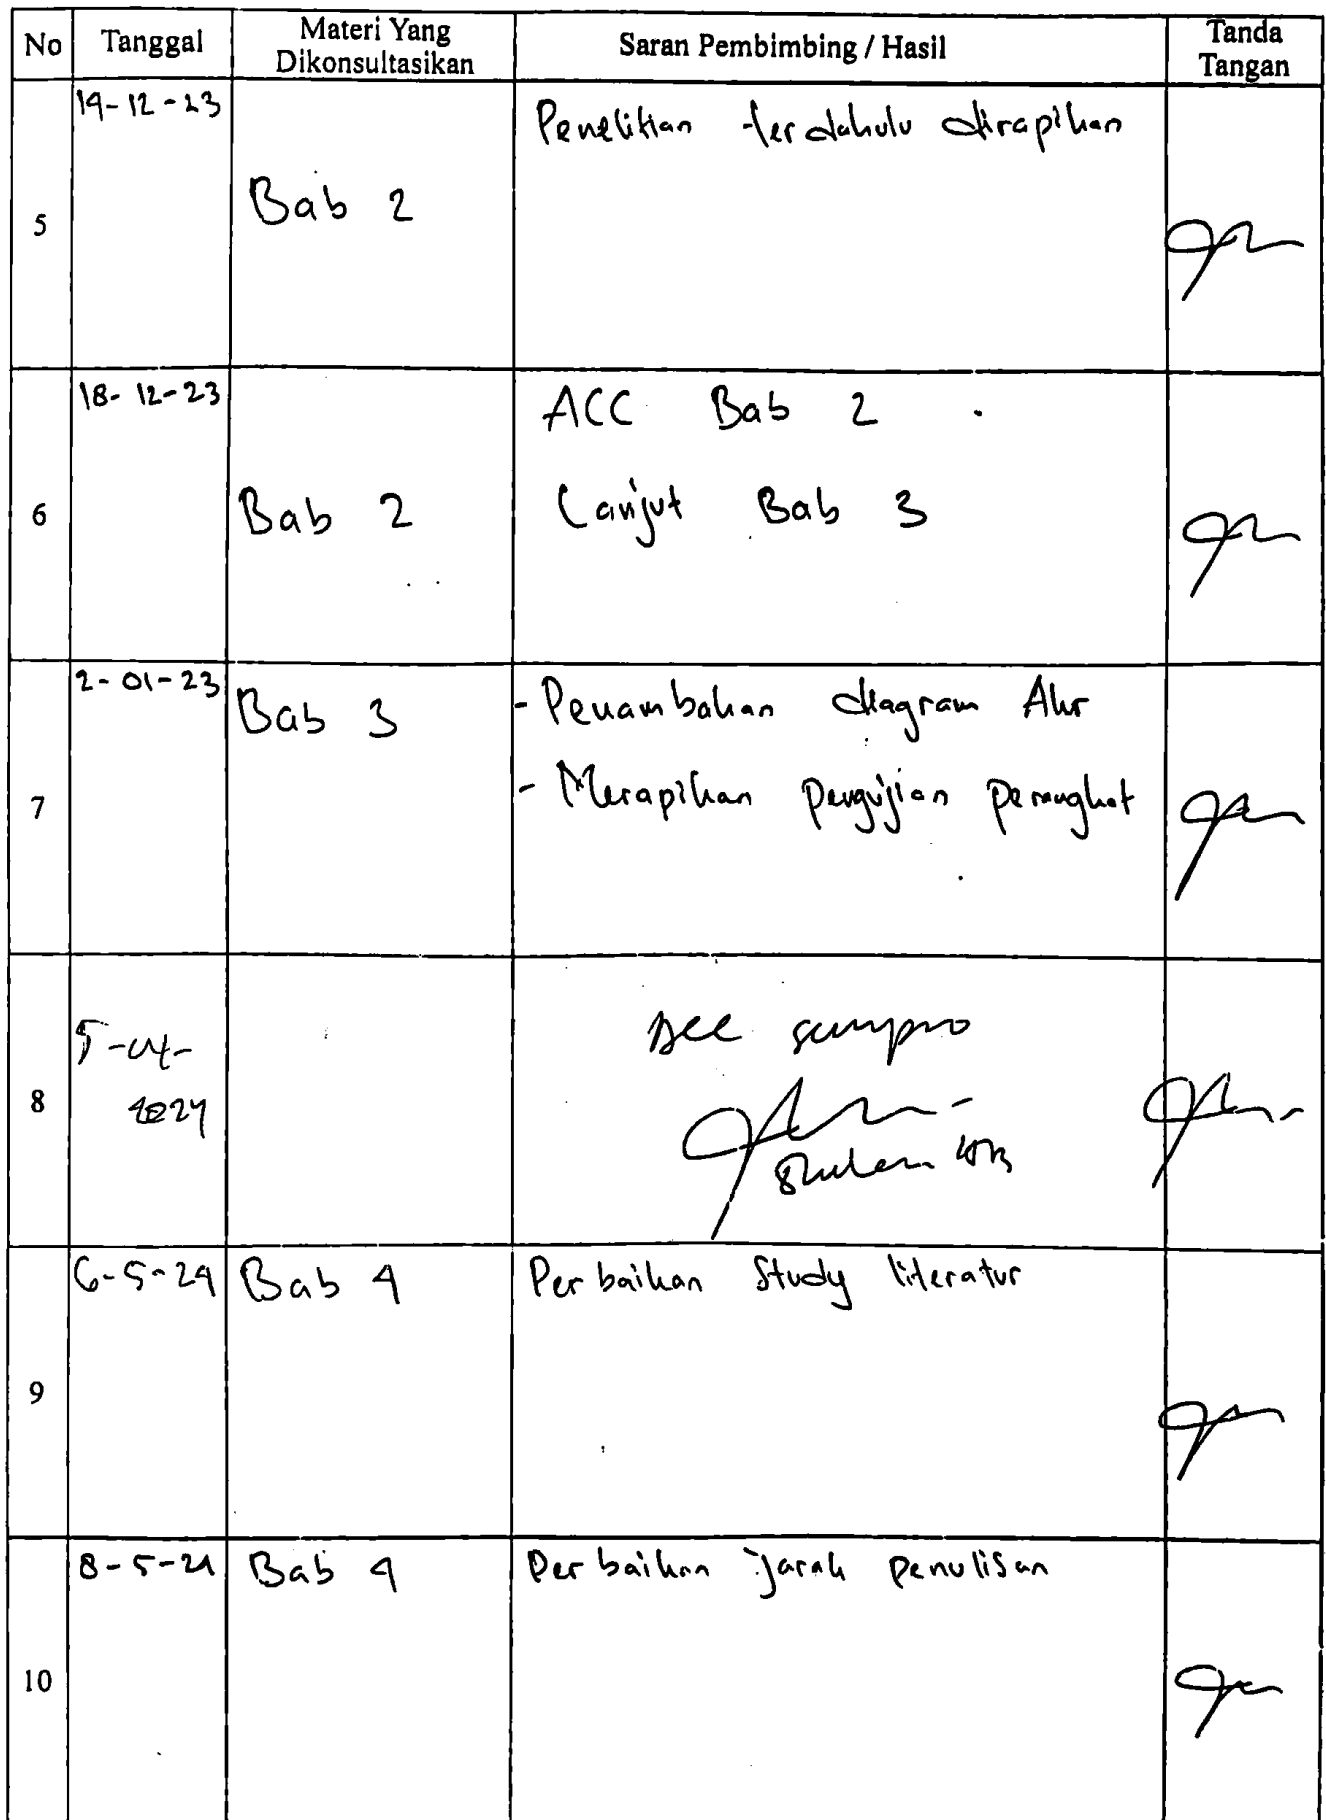 No Tanggal Materi Yang Dikonsultasikan Saran Pembimbing / Hasil Tanda Tangan
5 14-12-23 Bab 2 Penelitian terdahulu dirapihan
6 18-12-23 Bab 2 ACC Bab 2
Lanjut Bab 3
7 2-01-23 Bab 3 - Penambahan diagram Alir
- Merapihan pengujian perangkat
8 2024 Acc sempro
9 6-5-24 Bab 4 Perbaikan Study literatur
10 8-5-24 Bab 4 Perbaikan jarak penulisan